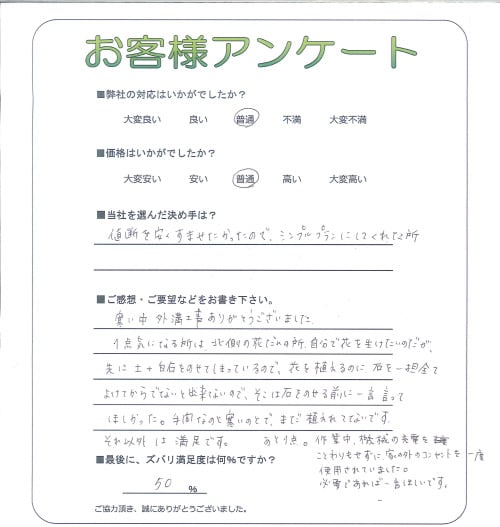 お客様アンケート
■弊社の対応はいかがでしたか？
大変良い 良い 普通 不満 大変不満
■価格はいかがでしたか？
大変安い 安い 普通 高い 大変高い
■当社を選んだ決め手は？
値断を安くすませたかったので、シンプルプランにしてくれた所
■ご感想・ご要望などをお書き下さい。
寒い中 外溝工事ありがとうございました
1点気になる所は、北側の花だんの所、自分で花を生けたいのだが、
先に土+白石をのせてしまっているので、花を植えるのに石を一担全て
よけてからでないと出来ないので、そこは石をのせる前に一言言って
ほしかった。手間なのと寒いのとで、まだ植えれてないです。
それ以外は満足です。 あと1点。作業中、機械の充電を
ことわりもせずに、家の外のコンセントを一度
使用されていました。
必要であれば一言ほしいです。
■最後に、ズバリ満足度は何%ですか？
50 %
ご協力頂き、誠にありがとうございました。